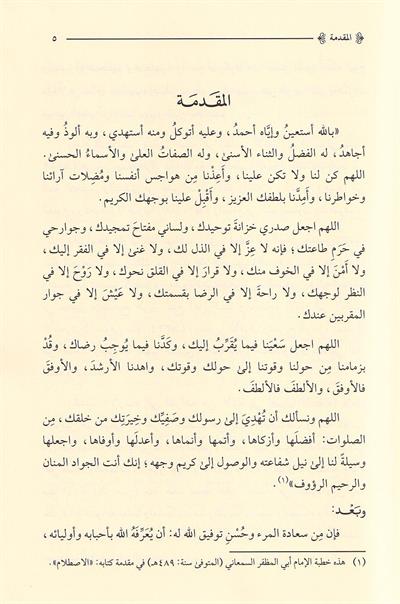 المقدمة ٥
المقَدمَة
«بالله أستعينُ وإيَّاه أحمدُ، وعليه أتوكلُ ومنه أستهدي، وبه ألوذُ وفيه
أجاهدُ، له الفضلُ والثناء الأسنىٰ، وله الصفاتُ العلىٰ والأسماءُ الحسنىٰ.
اللهم كن لنا ولا تكن علينا، وأَعِذْنا مِن هواجس أنفسنا ومُضِلات آرائنا
وخواطرنا، وأَمِدَّنا بلطفك العزيز، وأَقْبِلْ علينا بوجهك الكريم.
اللهم اجعل صدري خزانةَ توحيدك، ولساني مفتاحَ تمجيدك، وجوارحي
في حَرَمِ طاعتك؛ فإنه لا عِزَّ إلا في الذل لك، ولا غنىٰ إلا في الفقر إليك،
ولا أَمْنَ إلا في الخوف منك، ولا قرارَ إلا في القلق نحوك، ولا رَوْحَ إلا في
النظر لوجهك، ولا راحةَ إلا في الرضا بقسمتك، ولا عَيْشَ إلا في جوار
المقربين عندك.
اللهم اجعل سَعْيَنا فيما يُقَرِّبُ إليك، وكَدَّنا فيما يُوجِبُ رضاك، وقُدْ
بزمامنا مِن حولنا وقوتنا إلىٰ حولك وقوتك، واهدنا الأرشدَ، والأوفقَ
فالأوفقَ، والألطفَ فالألطفَ.
اللهم ونسألك أن تُهْدِيَ إلىٰ رسولك وصَفِيِّك وخِيرَتِك مِن خلقك، مِن
الصلوات: أفضلَها وأزكاها، وأتمها وأنماها، وأعدلَها وأوفاها، واجعلها
وسيلةً لنا إلىٰ نيل شفاعته والوصول إلىٰ كريم وجهه؛ إنك أنت الجواد المنان
والرحيم الرؤوف»(١).
وبَعْد:
فإن مِن سعادة المرء وحُسْنِ توفيق الله له: أن يُعرِّفَهُ الله بأحبابه وأوليائه،
(١) هذه خطبة الإمام أبي المظفر السمعاني (المتوفىٰ سنة: ٤٨٩هـ) في مقدمة كتابه: «الاصطلام».